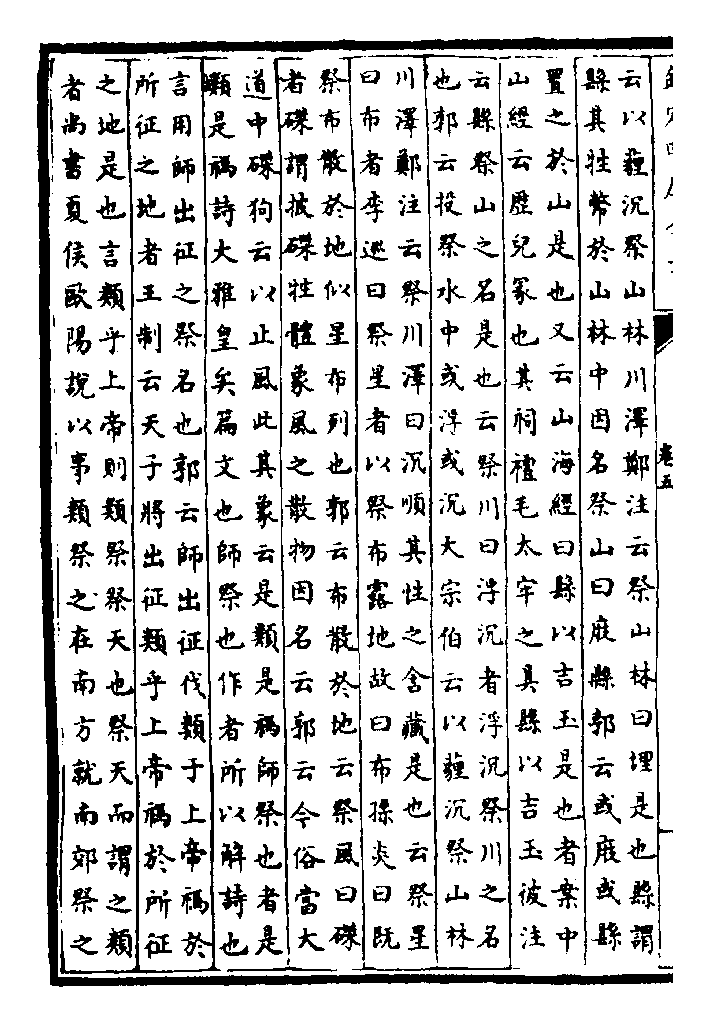 卷五
云以薶沉祭山林川澤鄭注云祭山林曰埋是也縣謂
縣其牲幣於山林中因名祭山曰庪縣郭云或庪或縣
置之於山是也又云山海經曰縣以吉玉是也者案中
山經云歷兒冢也其祠禮毛太牢之具縣以吉玉彼注
云縣祭山之名是也云祭川曰浮沉者浮沉祭川之名
也郭云投祭水中或浮或沉大宗伯云以薶沉祭山林
川澤鄭注云祭川澤曰沉順其性之含藏是也云祭星
曰布者李巡曰祭星者以祭布露地故曰布孫炎曰既
祭布散於地似星布列也郭云布散於地云祭風曰磔
者磔謂披磔牲體象風之散物因名云郭云今俗當大
道中磔狗云以止風此其象云是類是禡師祭也者是
類是禡詩大雅皇矣篇文也師祭也作者所以解詩也
言用師出征之祭名也郭云師出征伐類于上帝禡於
所征之地者王制云天子將出征類乎上帝禡於所征
之地是也言類乎上帝則類祭祭天也祭天而謂之類
者尚書夏侯歐陽說以事類祭之在南方就南郊祭之